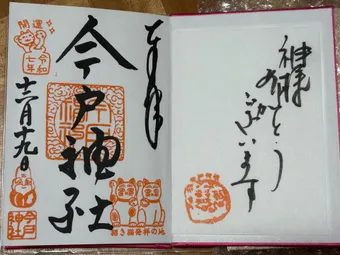 奉拝
今戸神社
開運
令和
七年
十二月十九日
今戸
神社
招き猫発祥の地
神様
ありがとう
ございます